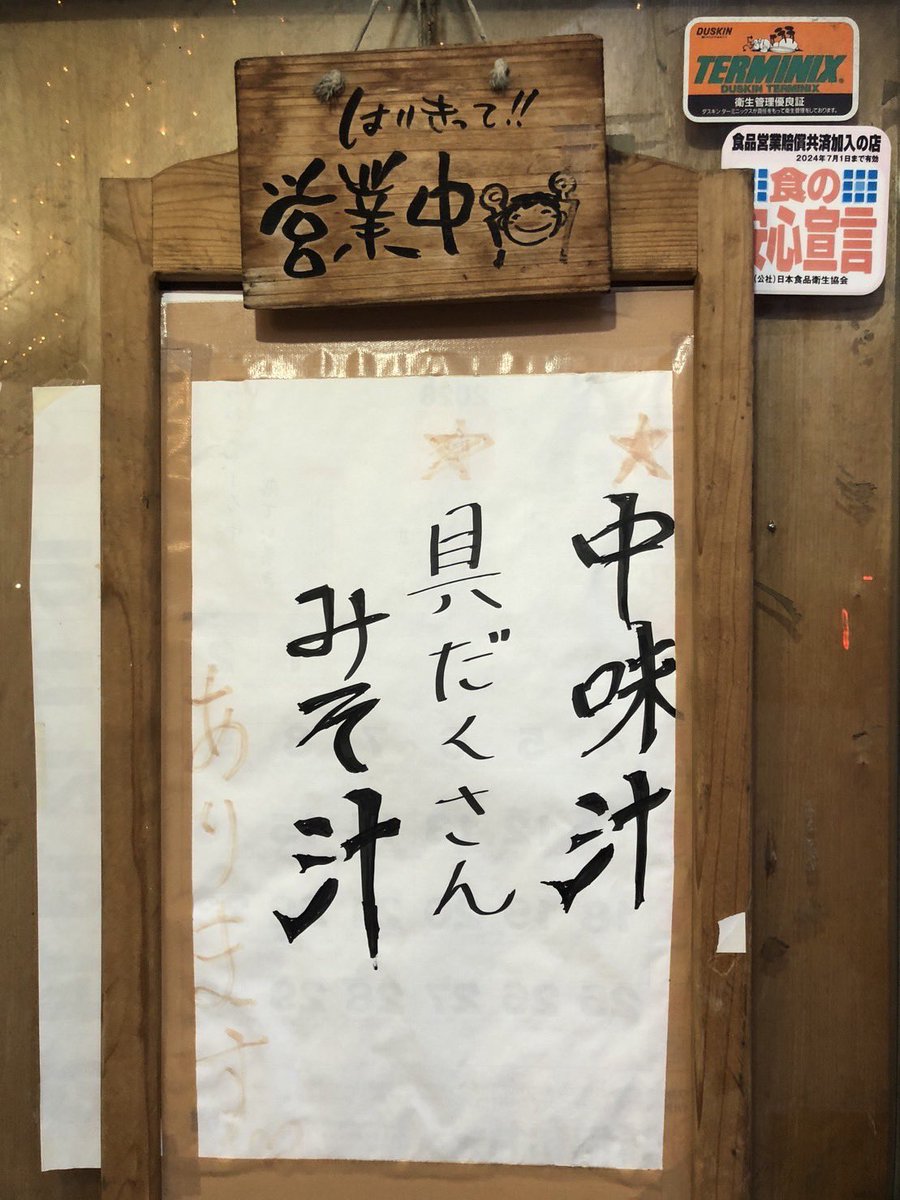 はりきって!!
営業中
DUSKIN
TERMINIX®
DUSKIN TERMINIX
衛生管理優良証
ダスキン ターミニックスが責任をもって衛生管理をしております。
食品営業賠償共済加入の店
2024年7月1日まで有効
食の
安心宣言
(公社)日本食品衛生協会
中味汁
具だくさん
みそ汁
あります